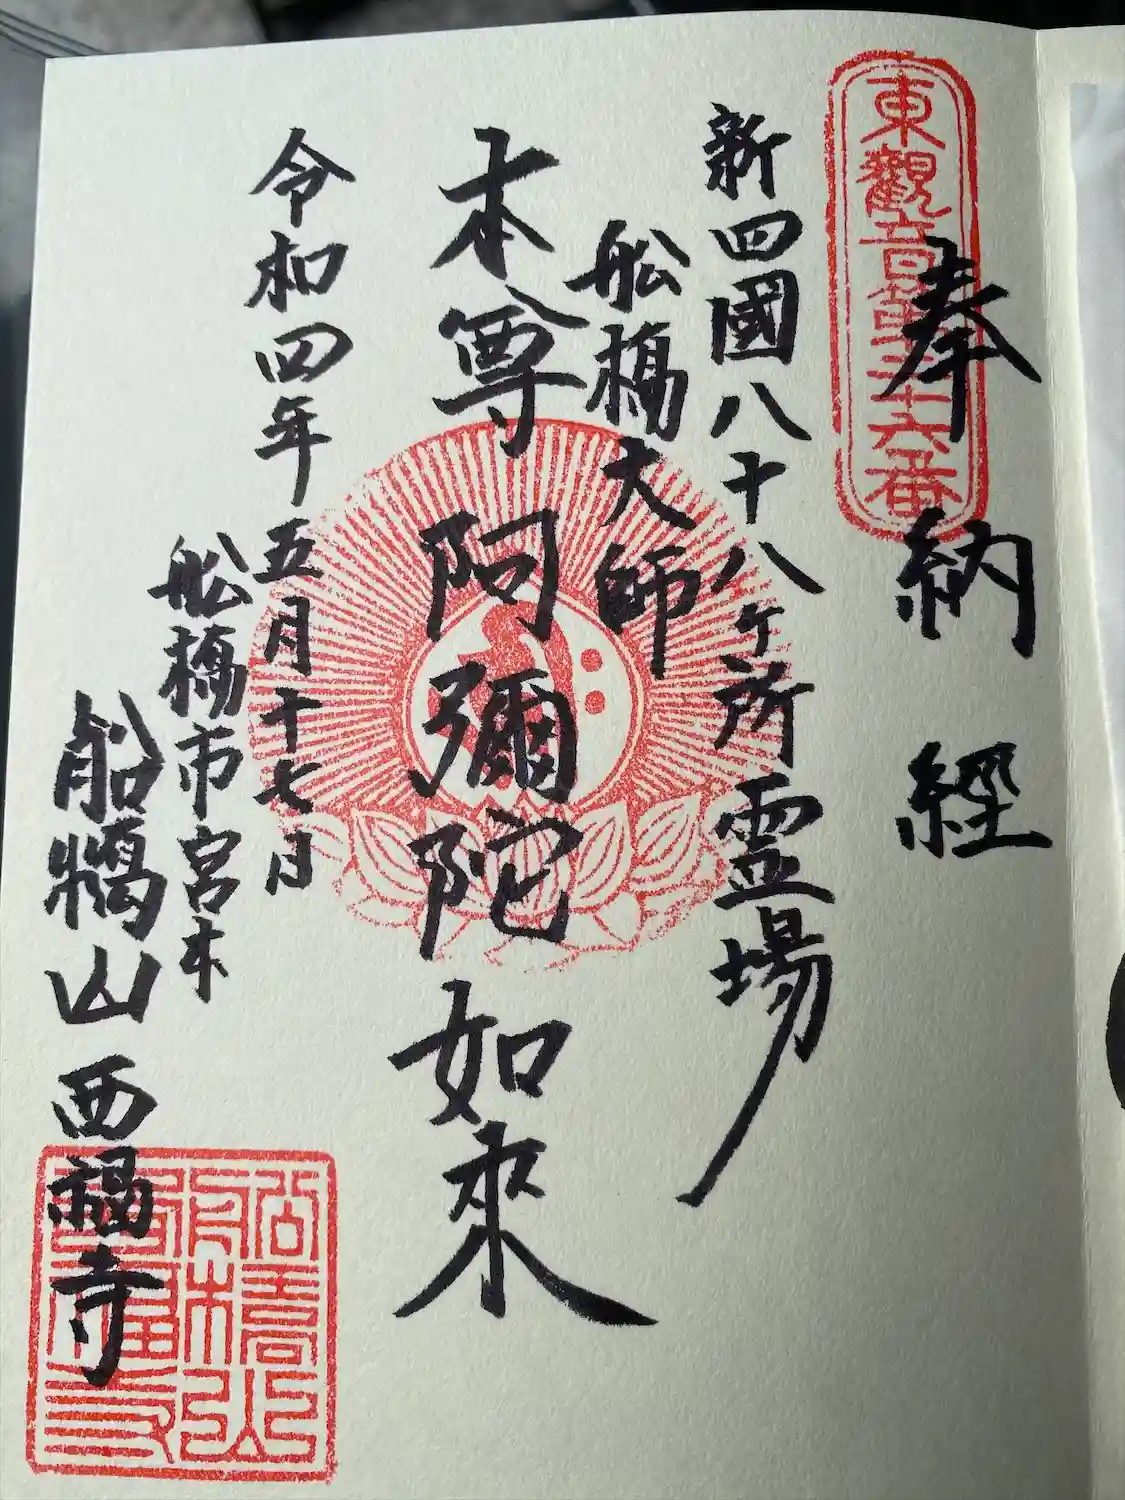 奉納経
東觀音第三十六番
新四國八十八ヶ所霊場
船橋大師
本尊阿彌陀如來
令和四年五月十七日
船橋市宮本
船橋山西福寺
船橋山西福寺